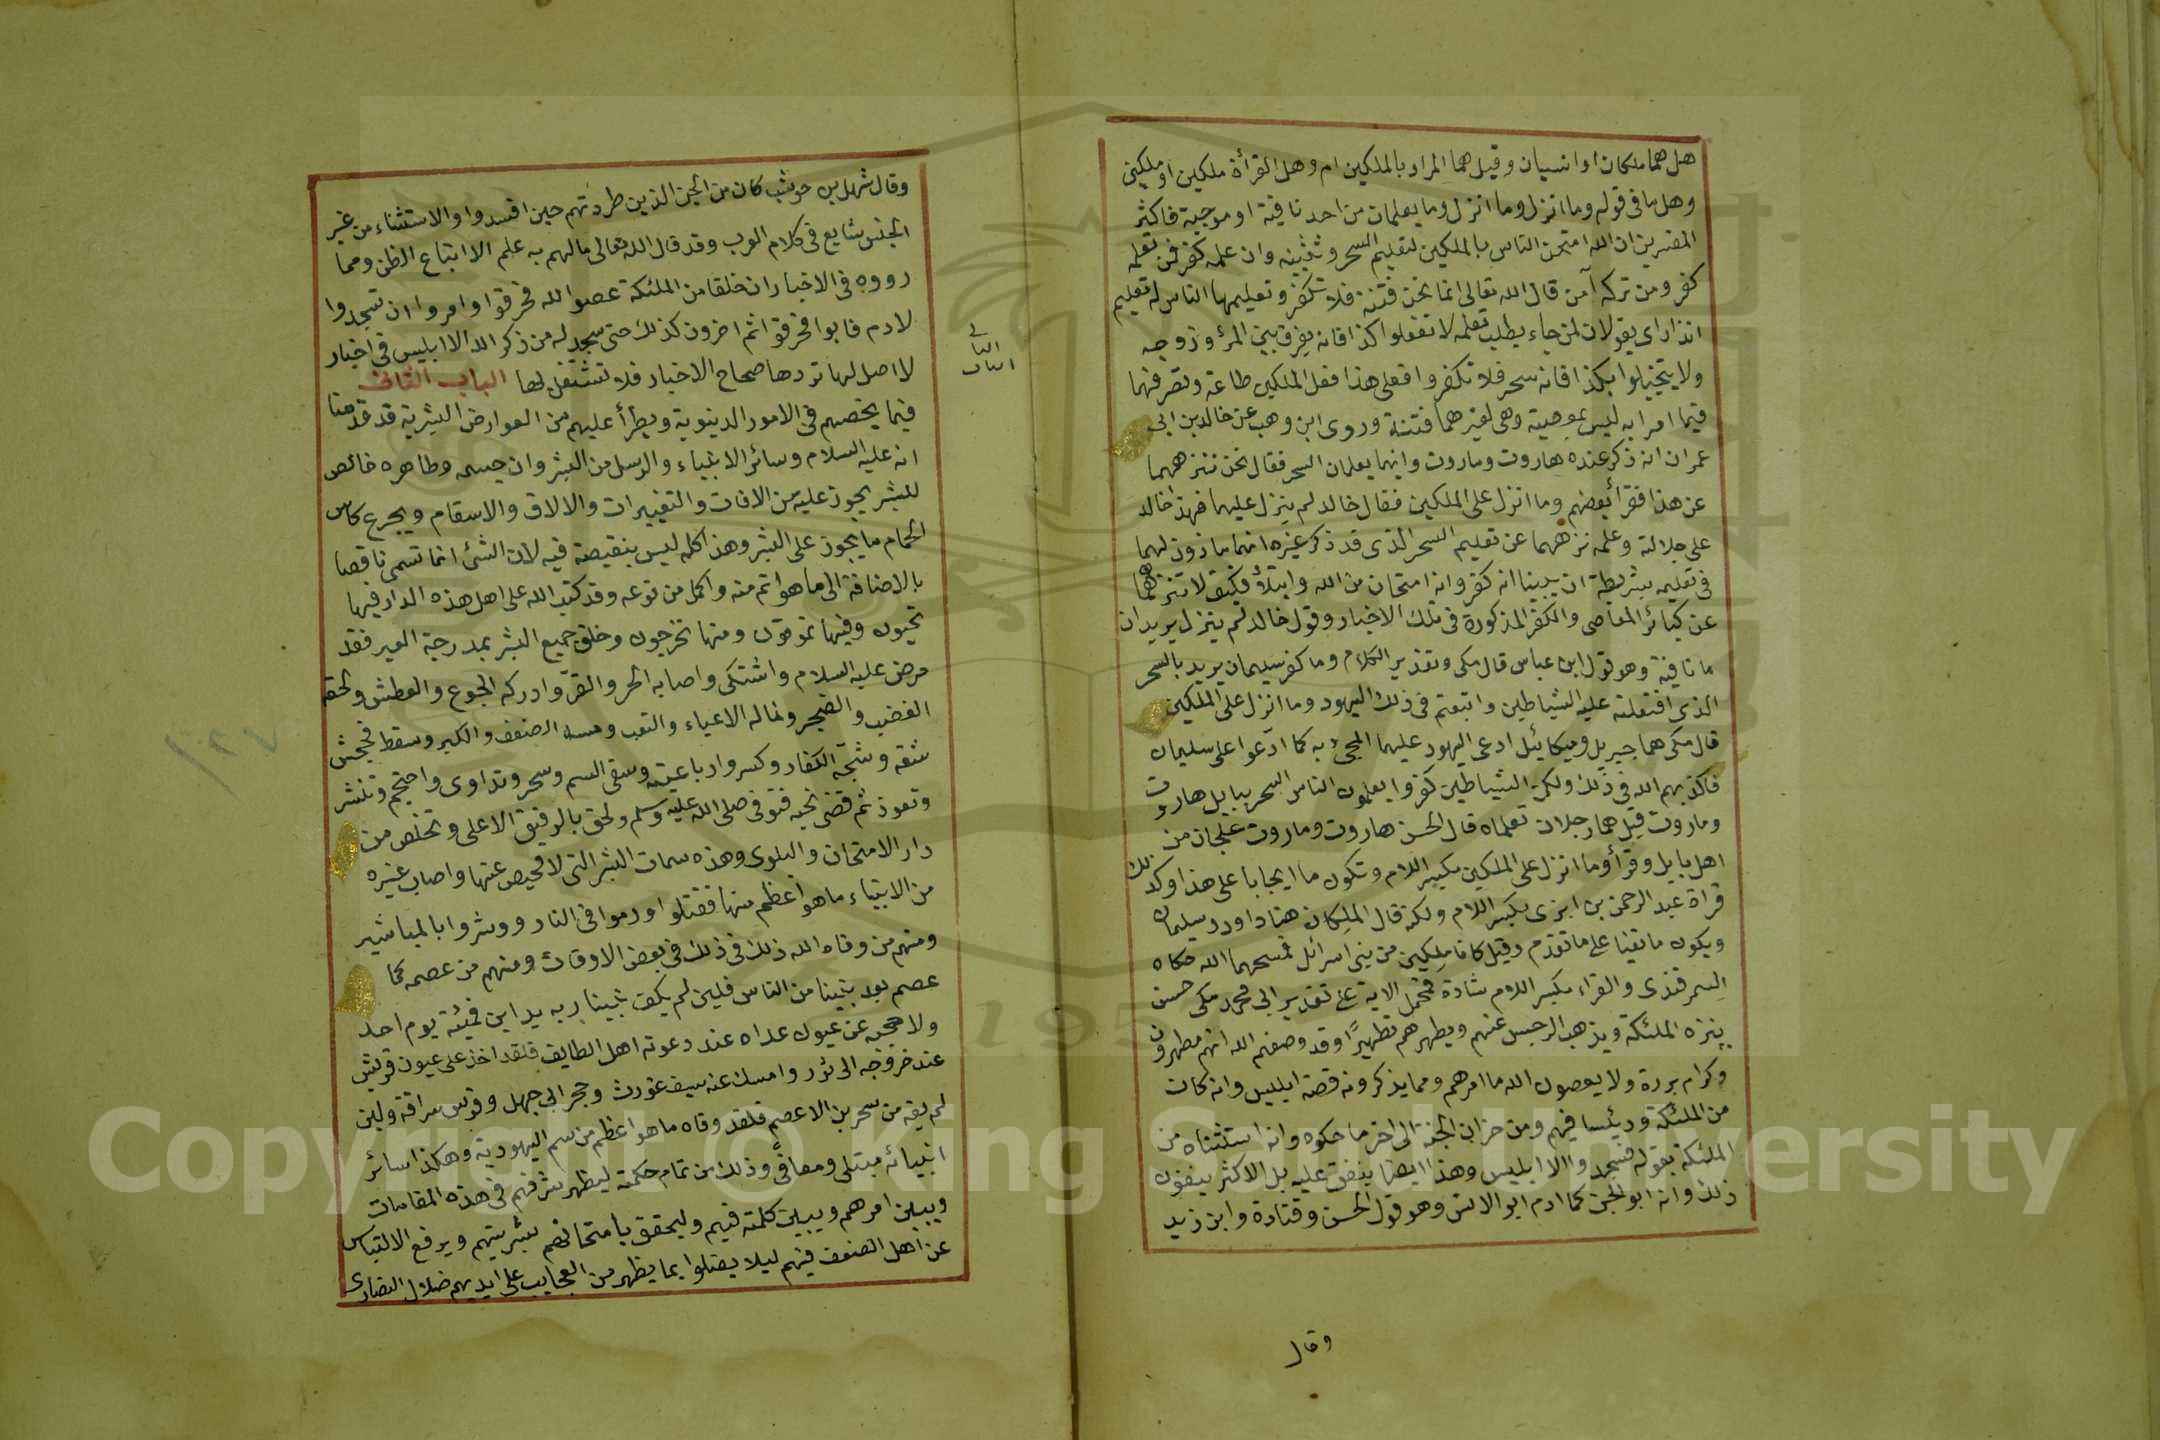 هل هما ملكان او انسيان وقيل هما المراد بالملكين ام وهل القرأة ملكين او ملكين
وهل ما فى قوله وما انزل وما انزل وما يعلمان من احد نافية او موجبة فاكثر
المفسرين ان الله امتحن الناس بالملكين لتعليم السحر وتبيينه وان علمه كفر فمن تعلمه
كفر ومن تركه آمن قال الله تعالى انما نحن فتنة فلا تكفر وتعليمهما الناس له تعليم
انذار اى يقولان لمن جاء يطلب تعلمه لا تفعلوا كذا فانه يفرق بين المرء وزوجه
ولا يتخيلوا بكذا فانه سحر فلا تكفروا فعلى هذا فعل الملكين طاعة وتصرفهما
فيما امرا به ليس بمعصية وهى لغيرهما فتنة وروى ابن وهب عن خالد بن ابى
عمران انه ذكر عنده هاروت وماروت وانهما يعلمان السحر فقال نحن ننزههما
عن هذا فقرأ بعضهم وما انزل على الملكين فقال خالد لم ينزل عليهما فهذا خالد
على جلالته وعلمه نزههما عن تعليم السحر الذى قد ذكر غيره انهما ماذون لهما
فى تعليمه بشريطة ان يبينا انه كفر وانه امتحان من الله وابتلاؤ فكيف لا ننزههما
عن كبائر المعاصى والكفر المذكورة فى تلك الاخبار وقول خالد لم ينزل يريد ان
ما نافية وهو قول ابن عباس قال مكى وتقدير الكلام وما كفر سليمان يريد بالسحر
الذى افتعلته عليه الشياطين واتبعتم فى ذلك اليهود وما انزل على الملكين
قال مكى هما جبريل وميكائيل ادعى اليهود عليهما المجئ به كما ادعوا على سليمان
فاكذبهم الله فى ذلك ولكن الشياطين كفروا يعلمون الناس السحر ببابل هاروت
وماروت قيل هما رجلان تعلماه قال الحسن هاروت وماروت علجان من
اهل بابل وقرأ وما انزل على الملكين بكسر اللام وتكون ما ايجابا على هذا وكذلك
قراة عبد الرحمن بن ابزى بكسر اللام ولكنه قال الملكان هنا داود وسليمان
ويكون ما نفيا على ما تقدم وقيل كانا ملكين من بنى اسرائل فمسخهما الله حكاه
السمرقندى والقراء بكسر اللام شاذة فمحمل الاية على تقدير ابى محمد مكى حسن
ينزه الملئكة ويذهب الرجس عنهم ويطهرهم تطهيرًا وقد وصفهم الله انهم مطهرون
وكرام بررة ولا يعصون الله ما امرهم ومما يذكرونه قصة ابليس وانه كان
من الملئكة ورئيسا فيهم ومن خزان الجنة الى اخر ما حكوه وانه استثناه من
الملئكة بقوله فسجدوا الا ابليس وهذا ايضا يتفق عليه بل الاكثر ينفون
ذلك وانه ابو الجن كما ادم ابو الانس وهو قول الحسن وقتادة وابن زيد
وقال
وقال شهل بن حوشب كان من الجن الذين طردتهم حين افسدوا والاستثناء من غير
الجنس شايع فى كلام العرب وقد قال الله تعالى ما لهم به علم الا اتباع الظن ومما
رووه فى الاخبار ان خلقا من الملئكة عصوا الله فحرقوا وامروا ان تسجدوا
لادم فابوا فحرقوا ثم اخرون كذلك حتى سجد له من ذكر الله الا ابليس فى اخبار
لا اصل لها تردها صحاح الاخبار فلا تشتغل لها الباب الثانى
فيما يخصهم فى الامور الدينوية ويطرأ عليهم من العوارض البشرية قد قدمنا
انه عليه السلام وسائر الانبياء والرسل من البشر وان جسمه وظاهره خالص
للبشر يجوز عليه من الافات والتغييرات والالاف والاسقام ويجرع كاس
الحمام ما يجوز على البشر وهذا كله ليس بنقيصة فيه لان الشئ انما تسمى ناقصا
بالاضافة الى ما هو اتم منه واكمل من نوعه وقد كتب الله على اهل هذه الدار فيها
تحيون وفيها تموتون ومنها تخرجون وخلق جميع البشر بمدرجة الغير فقد
مرض عليه السلام واشتكى واصابه الحر والقرّ وادركه الجوع والعطش ولحقه
الغضب والضجر وناله الاعياء والتعب ومسه الضعف والكبر وسقط فجحش
شقه وشجة الكفار وكسروا رباعيته وسقى السم وسحر وتداوى واحتجم وتنشر
وتعوذ ثم قضى نحبه فتوفى صلى الله عليه وسلم ولحق بالرفيق الاعلى وتخلص من
دار الامتحان والبلوى وهذه سمات البشر التى لا محيص عنها واصاب غيره
من الانبياء ما هو اعظم منها فقتلوا ورموا فى النار ووشروا بالمياشير
ومنهم من وقاه الله ذلك فى ذلك فى بعض الاوقات ومنهم من عصمه كما
عصم بعد نبينا من الناس فلين لم يكف نبينا ربه يد ابن قميئة يوم احد
ولا حجبه عن عيون عداه عند دعوته اهل الطايف فلقد اخذ على عيون قريش
عند خروجه الى ثور وامسك عنه سيف غورث وحجر ابى جهل وفرس سراقة ولين
لم يقه من سحر بن الاعصم فلقد وقاه ما هو اعظم من سم اليهودية وهكذا سائر
انبيائه مبتلى ومعافى وذلك من تمام حكمته ليظهر شرفهم فى هذه المقامات
ويبين امرهم ويبين كلمته فيهم وليحقق بامتحانهم بشريتهم ويرفع الالتباس
عن اهل الضعف فيهم ليلا يضلوا بما يظهر من العجايب على ايديهم ضلال النصارى
Copyright © King Saud University